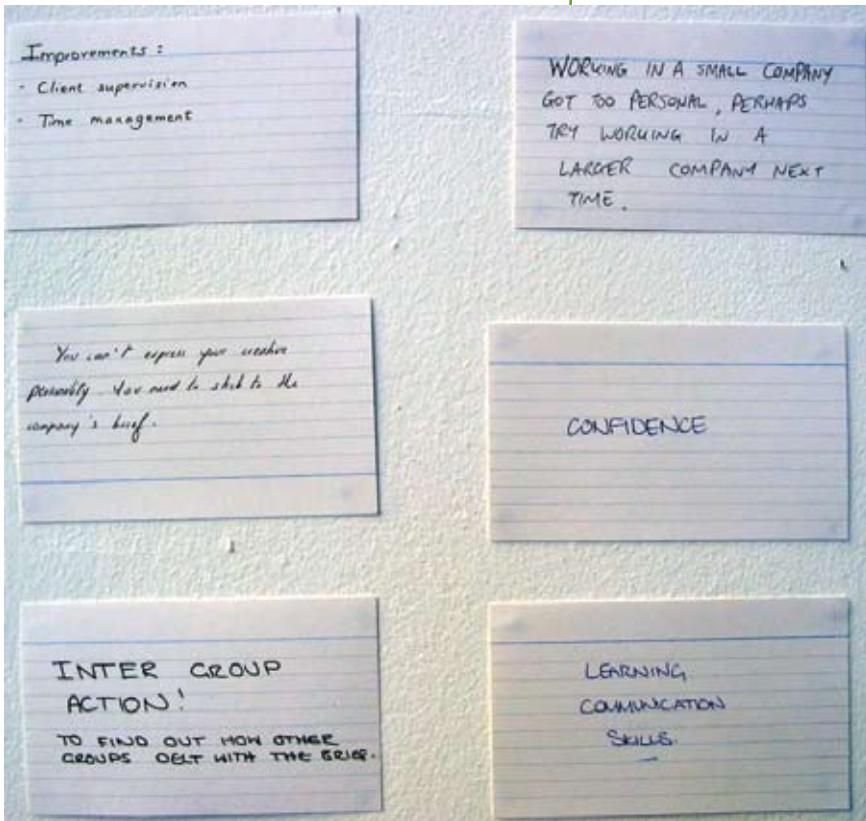 Improvements :
- Client supervision
- Time management
WORKING IN A SMALL COMPANY
GOT TOO PERSONAL, PERHAPS
TRY WORKING IN A
LARGER COMPANY NEXT
TIME.
You can't express your creative
personality. You need to stick to the
company's brief.
CONFIDENCE
INTER GROUP
ACTION!
TO FIND OUT HOW OTHER
GROUPS DELT WITH THE BRIEF.
LEARNING
COMMUNICATION
SKILLS.